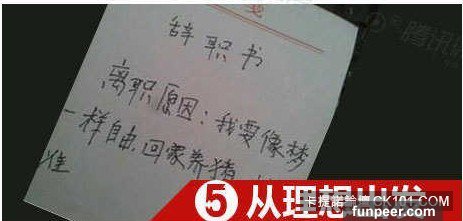 辞职书
离职原因：我要像梦
一样自由.回家养猪
准
5 从理想出发
卡提諾論壇 CK101.COM
funpeer.com